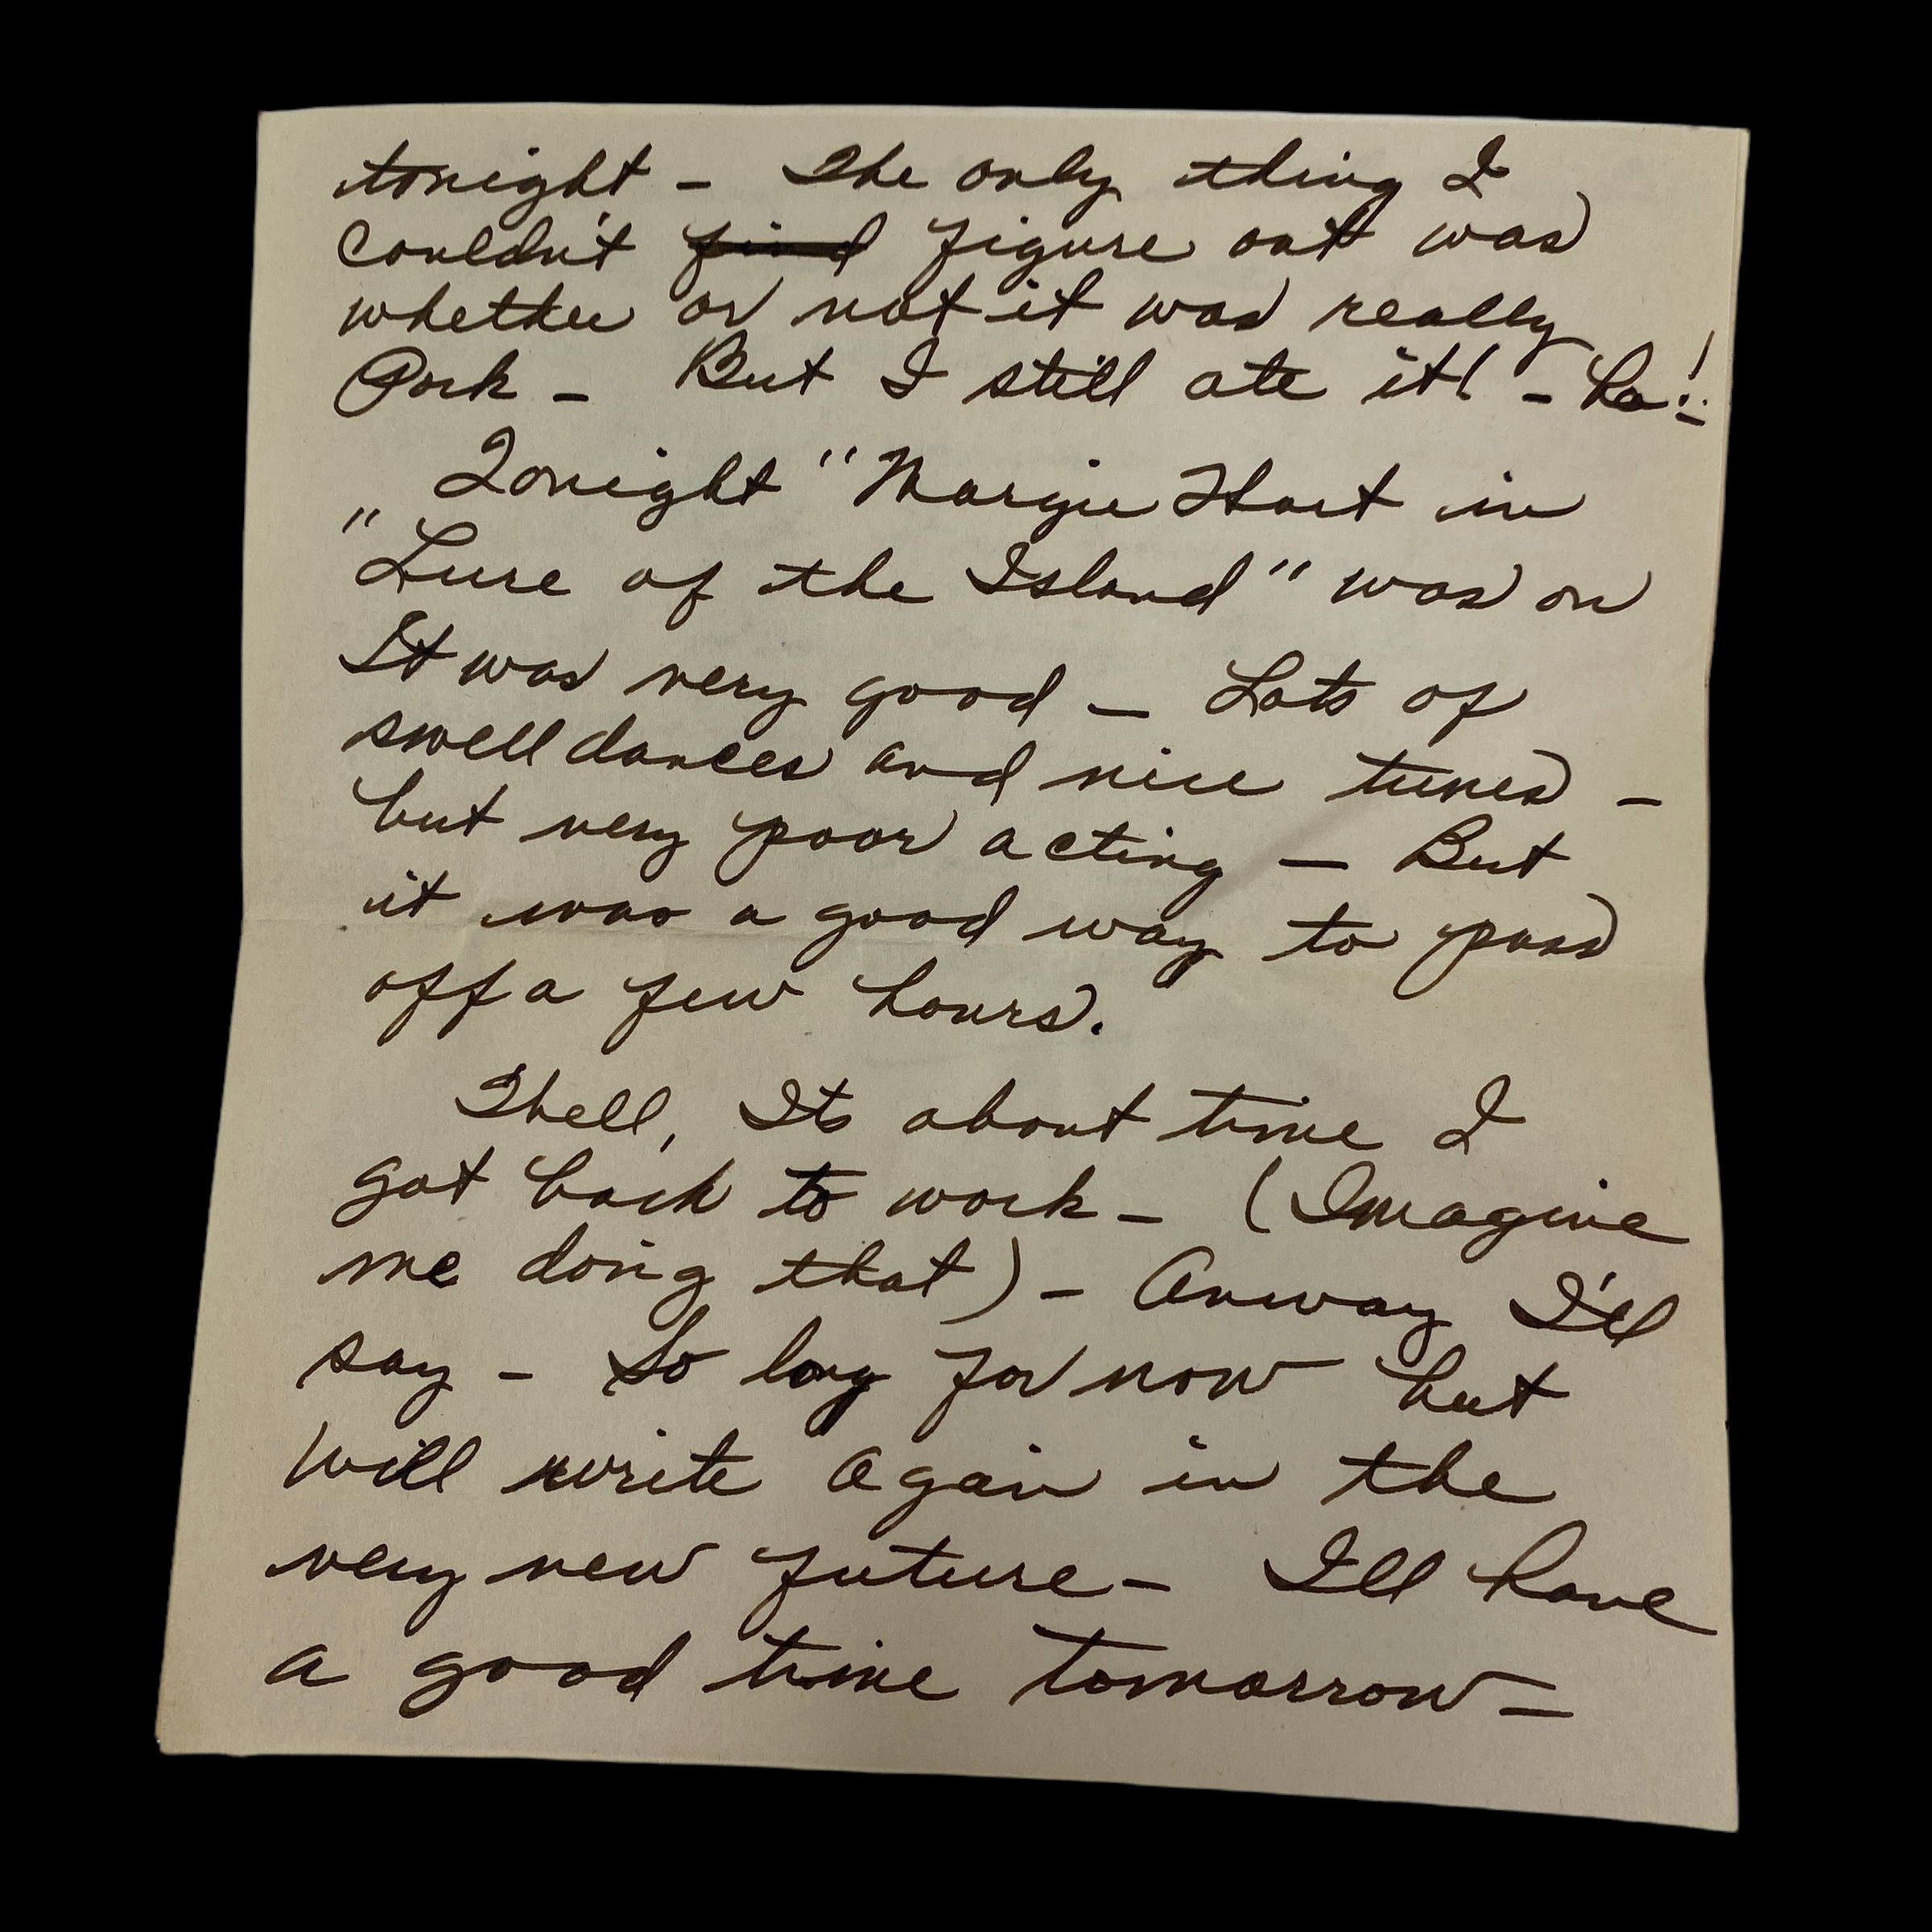 tonight - The only thing I
couldn't find figure out was
whether or not it was really
Pork - But I still ate it! - ha!!
Tonight "Margie Hart in
"Lure of the Island" was on
It was very good - Lots of
swell dances and nice tunes -
but very poor acting - But
it was a good way to pass
off a few hours.
Shell, Its about time I
got back to work - (Imagine
me doing that) - Anway I'll
say - So long for now but
will write again in the
very new future - I'll have
a good time tomorrow -